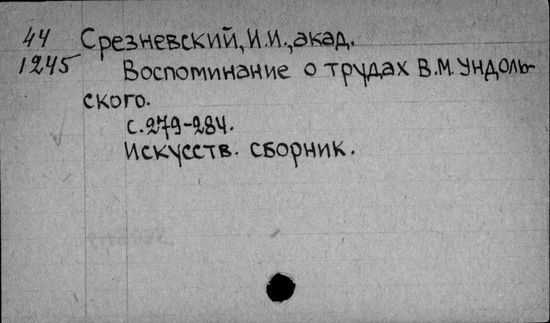 44 Срезневский, И.И., акад.
1245 Воспоминание о трудах В.М. Ундоль-
ского.
с. 279-284.
Искусств. сборник.